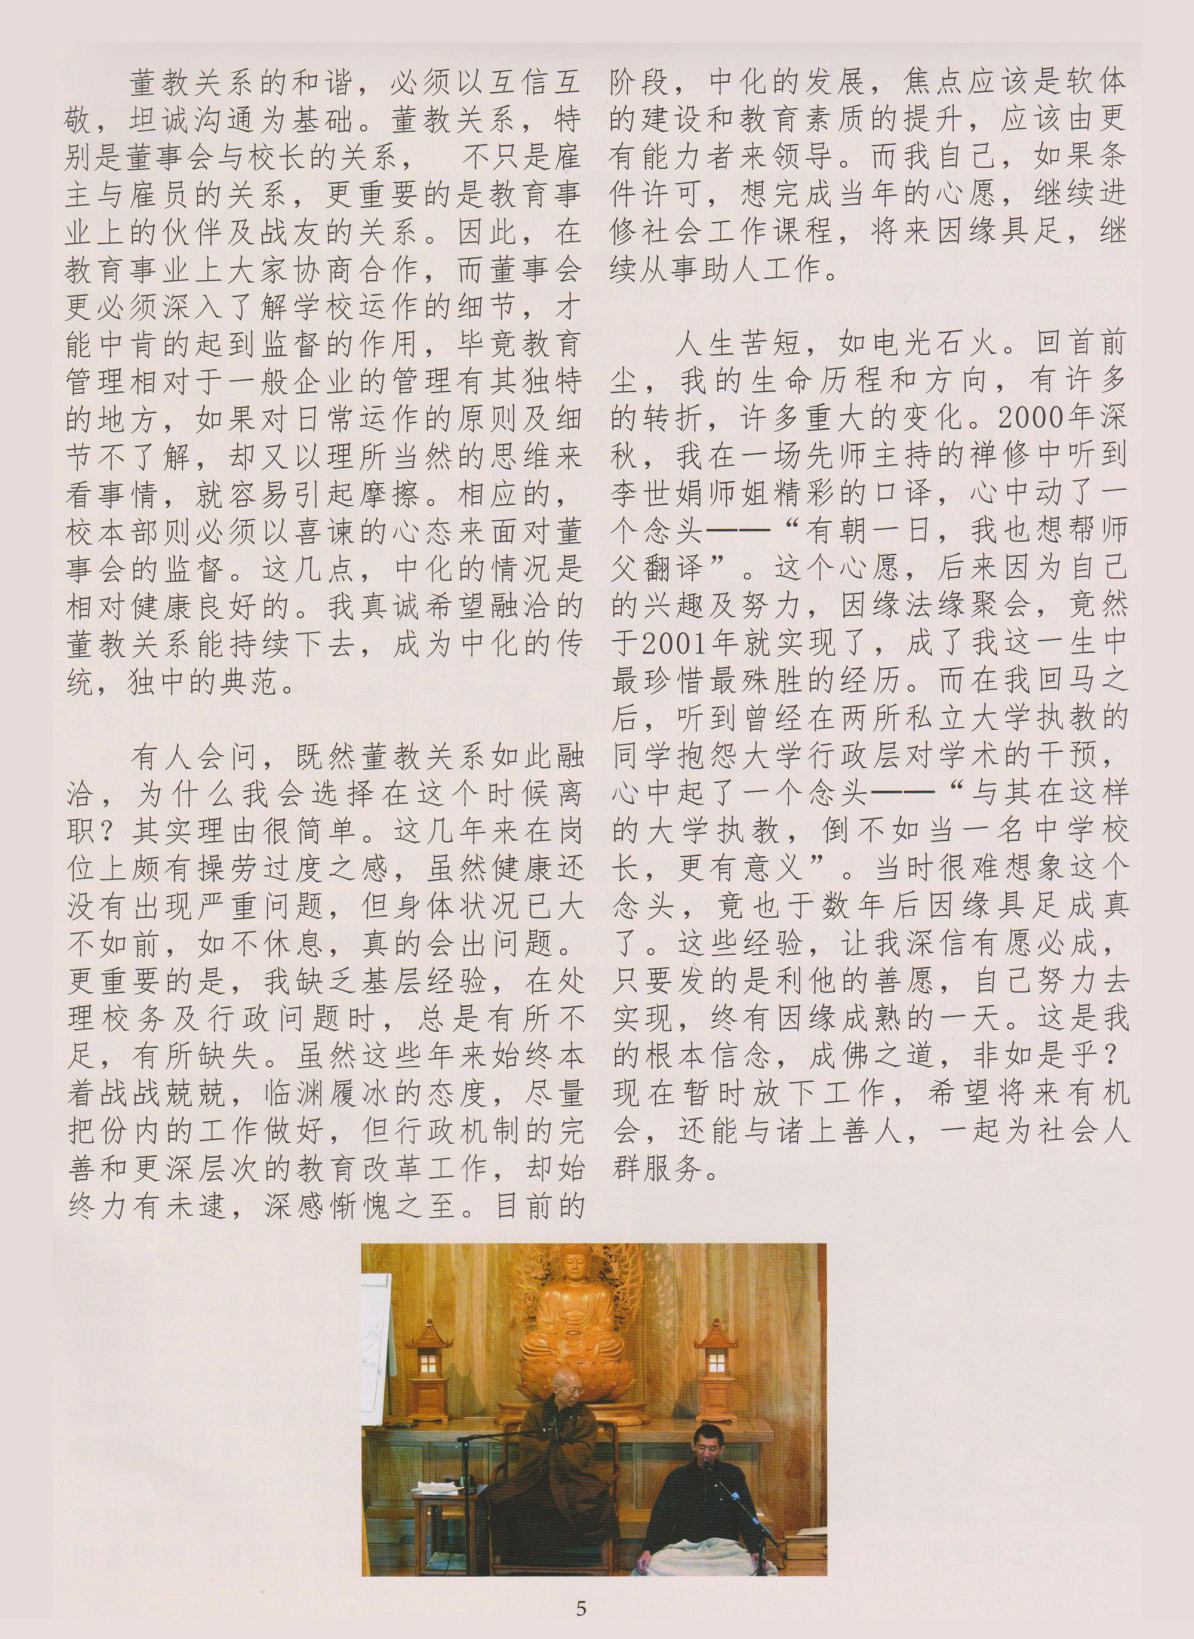 董教关系的和谐，必须以互信互
敬，坦诚沟通为基础。董教关系，特
别是董事会与校长的关系， 不只是雇
主与雇员的关系，更重要的是教育事
业上的伙伴及战友的关系。因此，在
教育事业上大家协商合作，而董事会
更必须深入了解学校运作的细节，才
能中肯的起到监督的作用，毕竟教育
管理相对于一般企业的管理有其独特
的地方，如果对日常运作的原则及细
节不了解，却又以理所当然的思维来
看事情，就容易引起摩擦。相应的，
校本部则必须以喜谏的心态来面对董
事会的监督。这几点，中化的情况是
相对健康良好的。我真诚希望融洽的
董教关系能持续下去，成为中化的传
统，独中的典范。
有人会问，既然董教关系如此融
洽，为什么我会选择在这个时候离
职？其实理由很简单。这几年来在岗
位上颇有操劳过度之感，虽然健康还
没有出现严重问题，但身体状况已大
不如前，如不休息，真的会出问题。
更重要的是，我缺乏基层经验，在处
理校务及行政问题时，总是有所不
足，有所缺失。虽然这些年来始终本
着战战兢兢，临渊履冰的态度，尽量
把份内的工作做好，但行政机制的完
善和更深层次的教育改革工作，却始
终力有未逮，深感惭愧之至。目前的
阶段，中化的发展，焦点应该是软体
的建设和教育素质的提升，应该由更
有能力者来领导。而我自己，如果条
件许可，想完成当年的心愿，继续进
修社会工作课程，将来因缘具足，继
续从事助人工作。
人生苦短，如电光石火。回首前
尘，我的生命历程和方向，有许多
的转折，许多重大的变化。2000年深
秋，我在一场先师主持的禅修中听到
李世娟师姐精彩的口译，心中动了一
个念头——“有朝一日，我也想帮师
父翻译”。这个心愿，后来因为自己
的兴趣及努力，因缘法缘聚会，竟然
于2001年就实现了，成了我这一生中
最珍惜最殊胜的经历。而在我回马之
后，听到曾经在两所私立大学执教的
同学抱怨大学行政层对学术的干预，
心中起了一个念头——“与其在这样
的大学执教，倒不如当一名中学校
长，更有意义”。当时很难想象这个
念头，竟也于数年后因缘具足成真
了。这些经验，让我深信有愿必成，
只要发的是利他的善愿，自己努力去
实现，终有因缘成熟的一天。这是我
的根本信念，成佛之道，非如是乎？
现在暂时放下工作，希望将来有机
会，还能与诸上善人，一起为社会人
群服务。
5